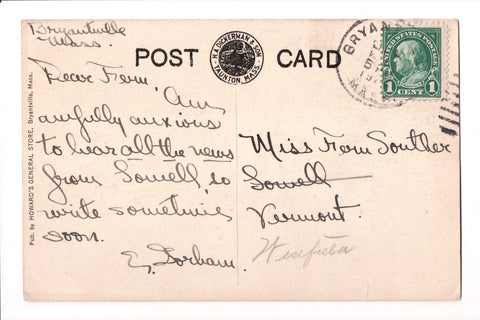 Bryantville
Mass.
POST CARD
H.A. DICKERMAN & SON
TAUNTON, MASS.
BRYAN
MA
UNITED STATES POSTAGE
1 CENT 1
Dear Fern, Am
awfully anxious
to hear all the news
from Lowell, so
write sometime
soon.
E. Gorham.
Miss Fern Souther
Lowell
Vermont.
Westfield
Pub. by HOWARD'S GENERAL STORE, Bryantville, Mass.